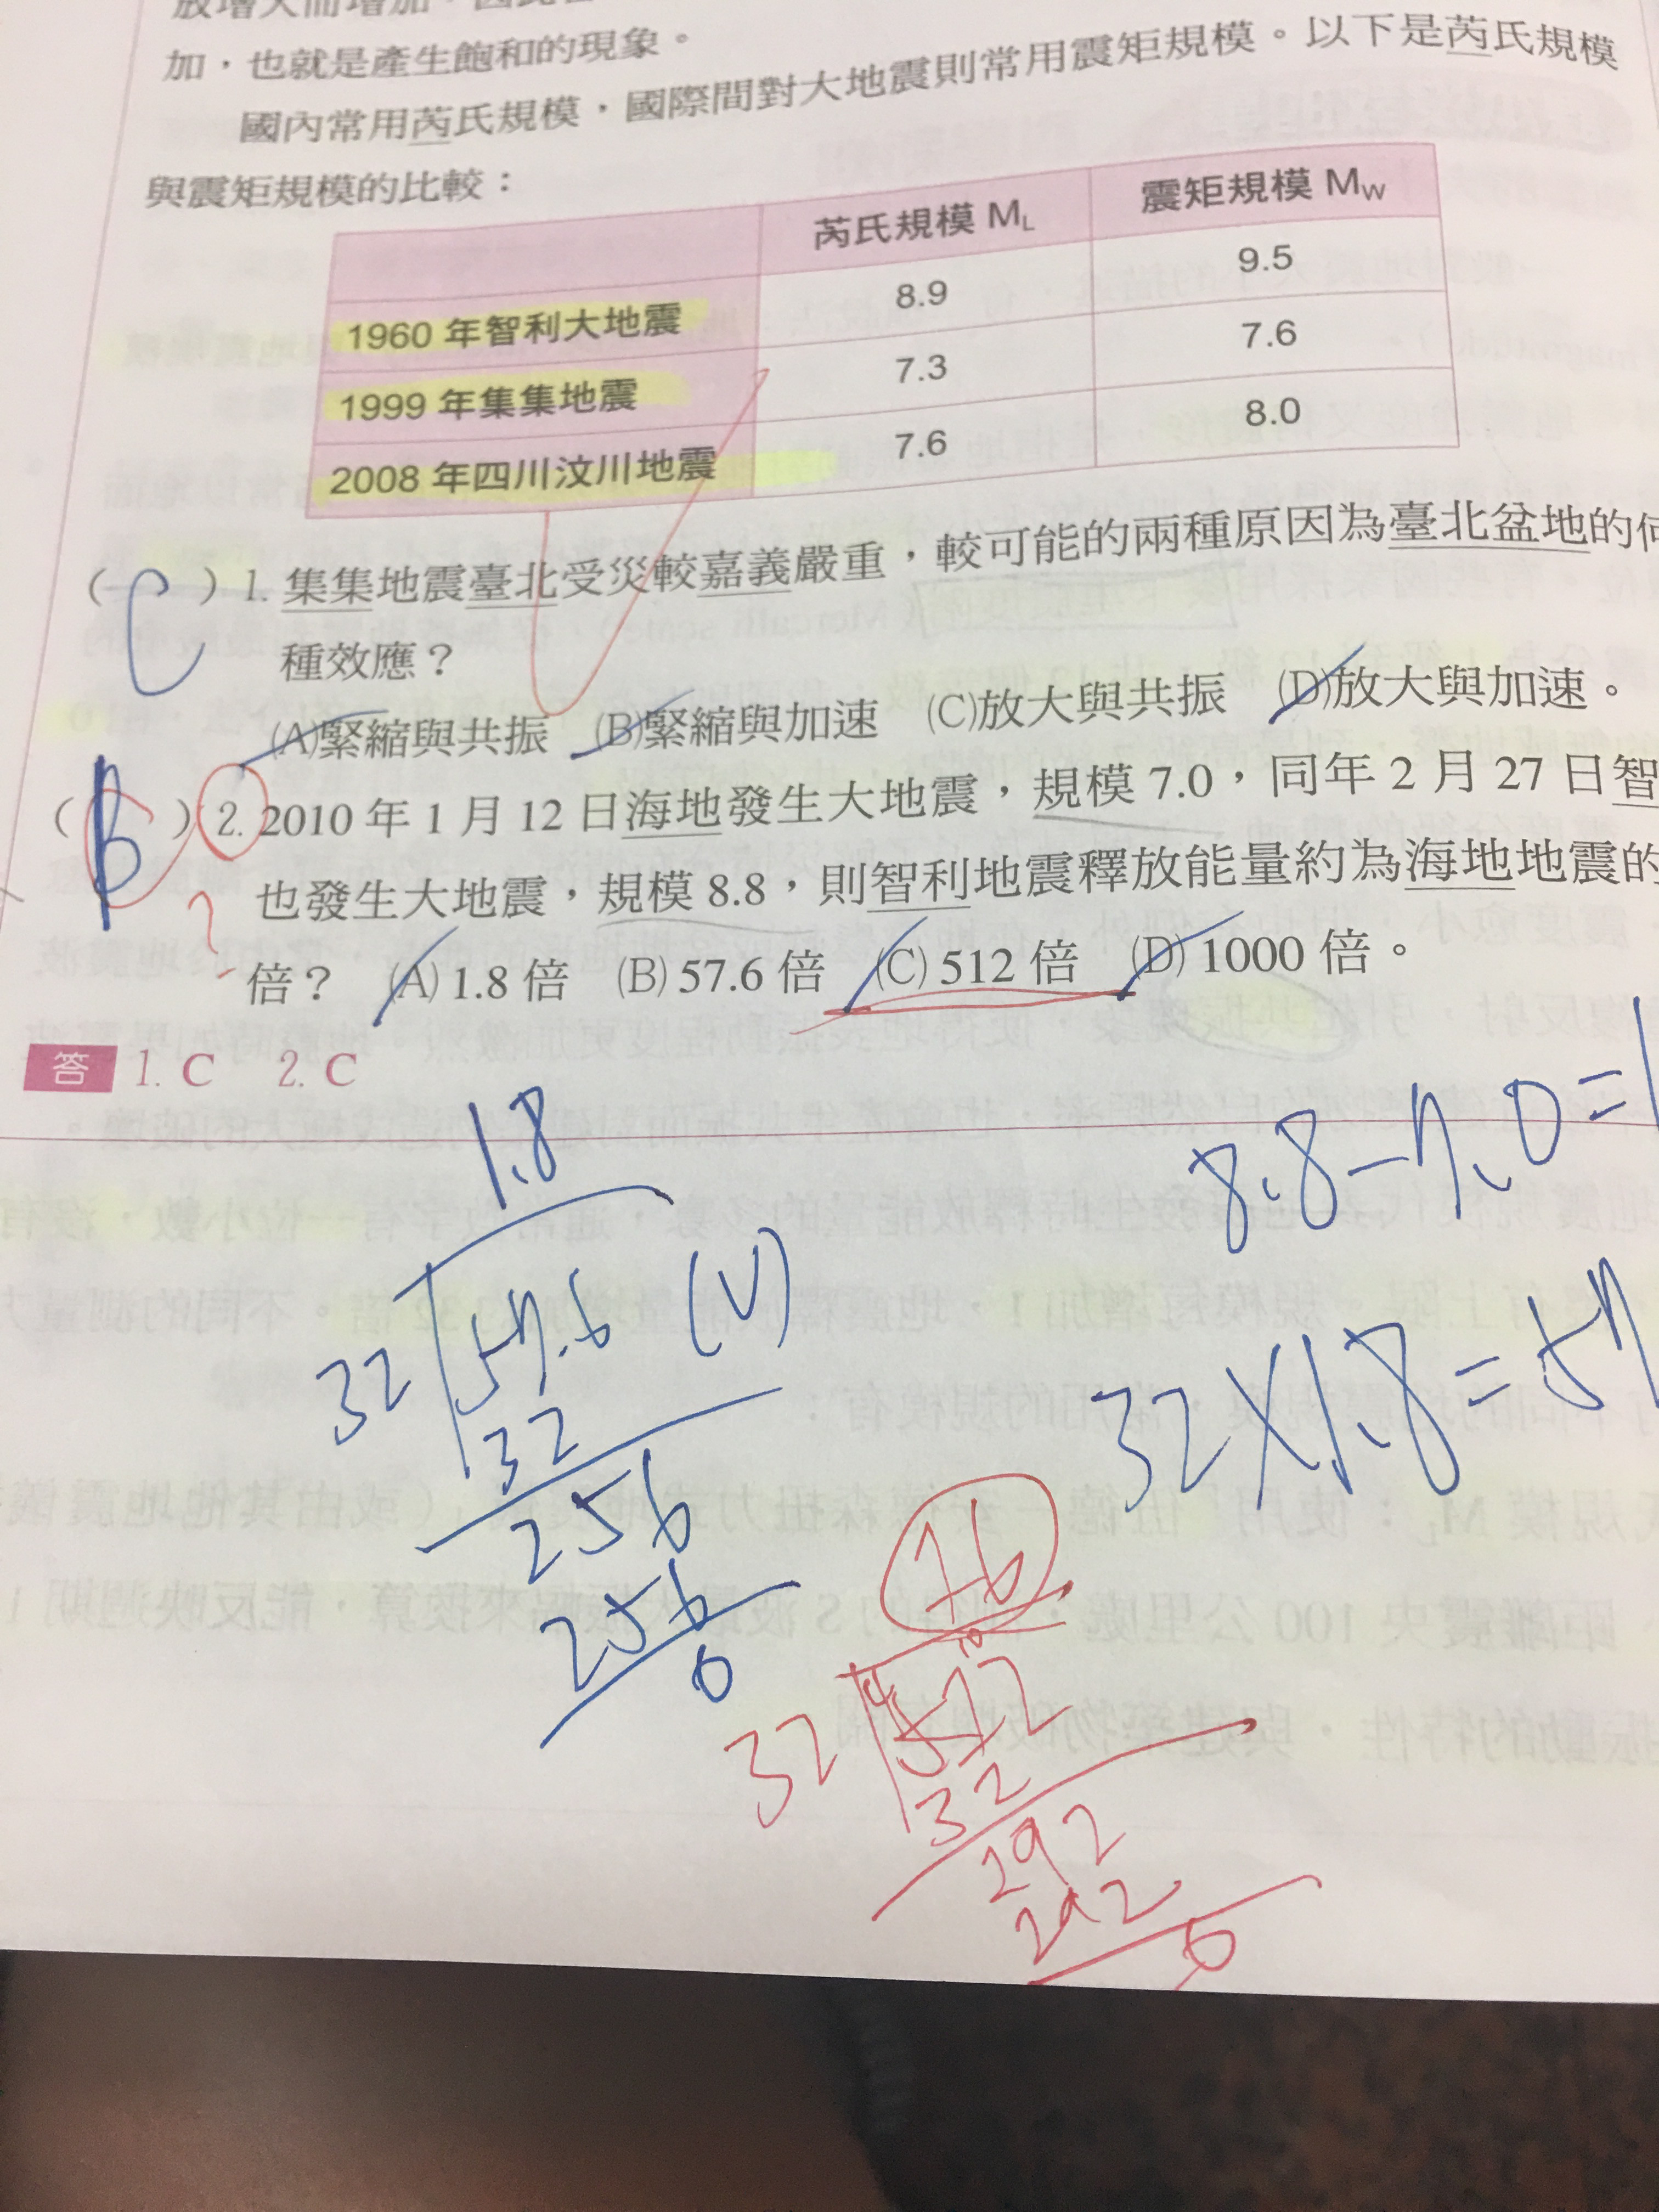 放增大而增加，因此
加，也就是產生飽和的現象。
國內常用芮氏規模，國際間對大地震則常用震矩規模。以下是芮氏規模
與震矩規模的比較：
芮氏規模 ML 震矩規模 MW
1960 年智利大地震 8.9 9.5
1999 年集集地震 7.3 7.6
2008 年四川汶川地震 7.6 8.0
( C ) 1. 集集地震臺北受災較嘉義嚴重，較可能的兩種原因為臺北盆地的何
種效應？
(A)緊縮與共振 (B)緊縮與加速 (C)放大與共振 (D)放大與加速。
( B ) 2. 2010 年 1 月 12 日海地發生大地震，規模 7.0，同年 2 月 27 日智
也發生大地震，規模 8.8，則智利地震釋放能量約為海地地震的
?
倍？ (A) 1.8 倍 (B) 57.6 倍 (C) 512 倍 (D) 1000 倍。
答 1. C 2. C
8.8-7.0=1
1.8
32 57.6 (V)
32
256
256
0
32×1.8=57
76
10
32 512
32
292
292
0